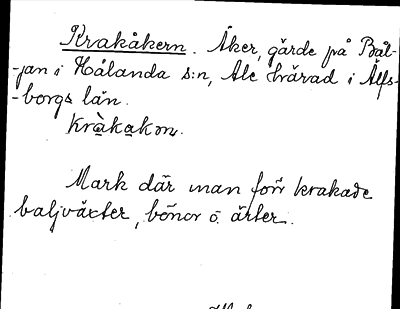 Krakåkern. Åker, gärde på Bål-
-jan i Hålanda s:n, Ale härad i Älfs-
-borgs län.
kràkakon.
Mark där man förr krakade
baljväxter, bönor o. ärter.